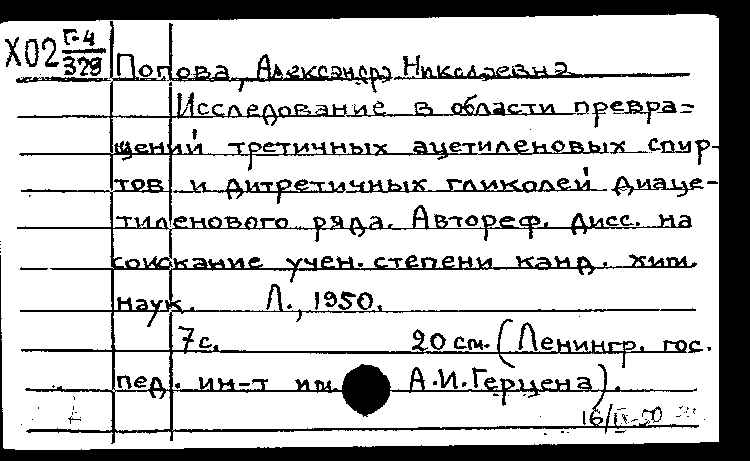 Х02 Г-4
329
Попова, Александра Николаевна
Исследование в области превра=
щений третичных ацетиленовых спир-
тов и дитретичных гликолей диаце-
тиленового ряда. Автореф. дисс. на
соискание учен. степени канд. хим.
наук. Л., 1950.
7с. 20 см. (Ленингр. гос.
пед. ин-т им. А.И.Герцена).
16/IX-50